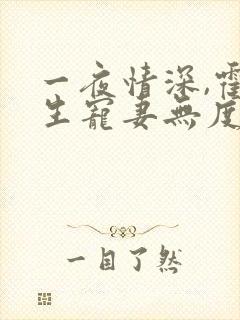 一夜情深,霍
生寵妻無度
一目了然